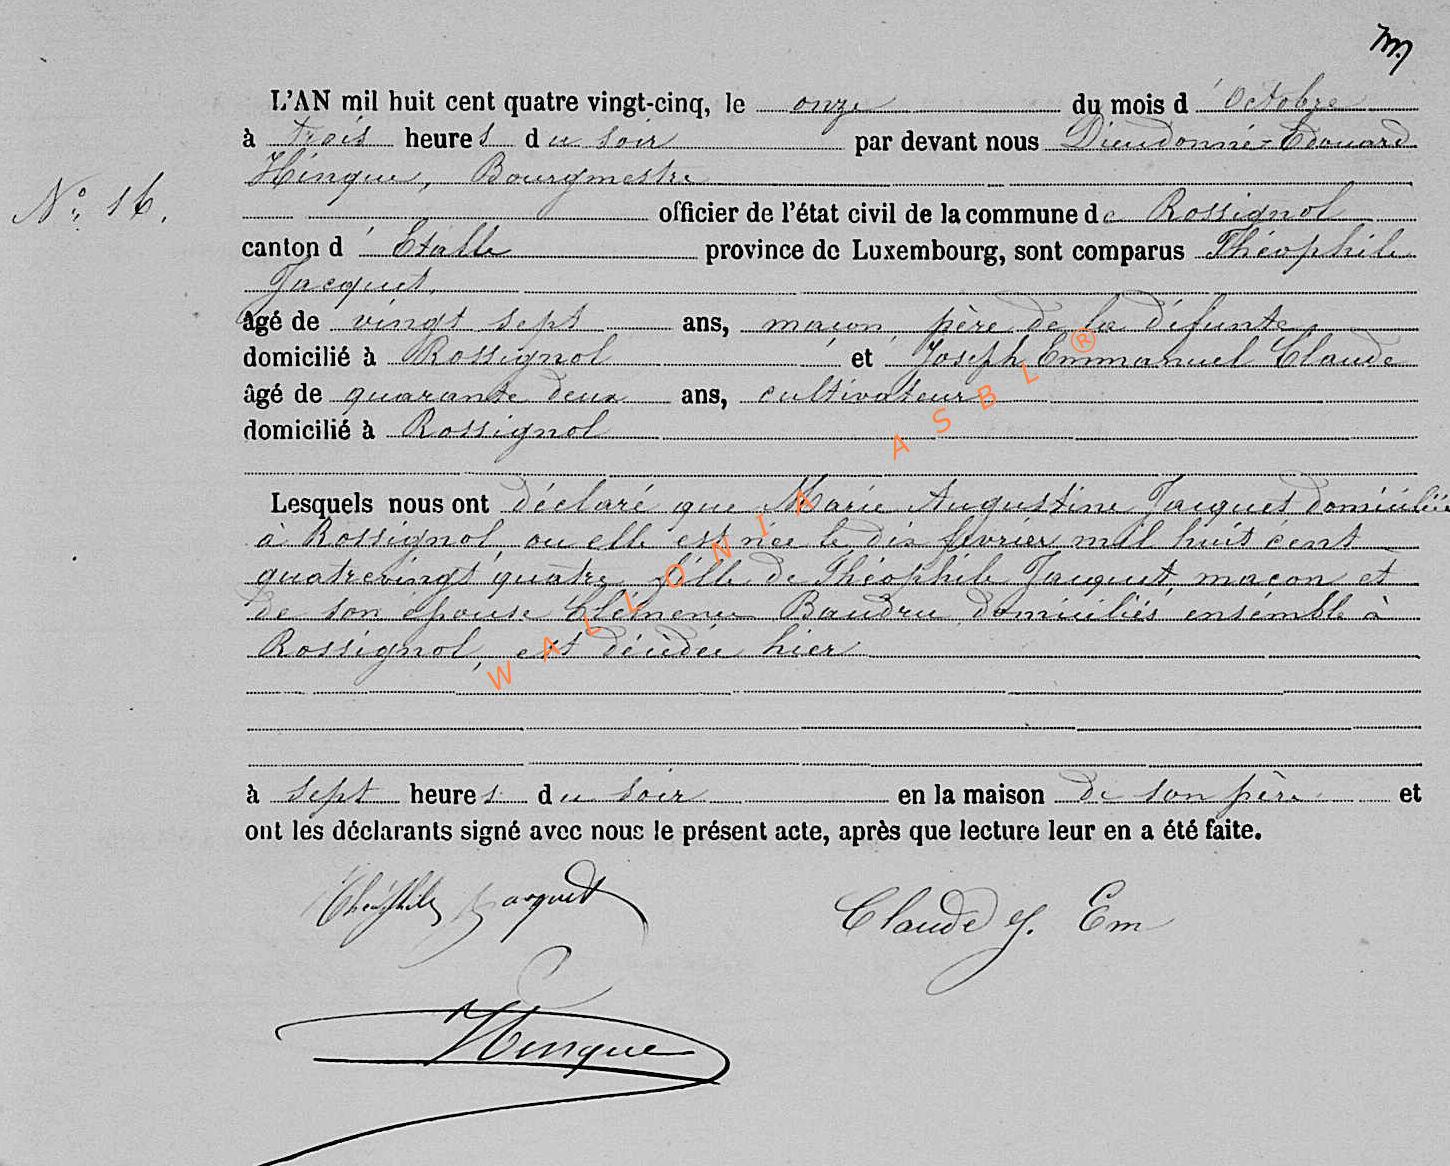 m
L'AN mil huit cent quatre vingt-cinq, le onze du mois d'Octobre
à trois heures du soir par devant nous Dieudonné-Edouard
Hinque, Bourgmestre
N° 16.
officier de l'état civil de la commune de Rossignol
canton d'Etalle province de Luxembourg, sont comparus Théophile
Jacquet,
âgé de vingt sept ans, maçon, père de la défunte,
domicilié à Rossignol et Joseph Emmanuel Claude
âgé de quarante deux ans, cultivateur
domicilié à Rossignol
Lesquels nous ont déclaré que Marie Augustine Jacquet domiciliée
à Rossignol, ou elle est née le dix février mil huit cent
quatrevingt quatre, fille de Théophile Jacquet, maçon et
de son épouse Clémence Baudru, domiciliés ensemble à
Rossignol, est décédée hier
à sept heures du soir en la maison de son père et
ont les déclarants signé avec nous le présent acte, après que lecture leur en a été faite.
Théophile Jacquet Claude J. Em
Hinque
WALLONIA ASBL ®